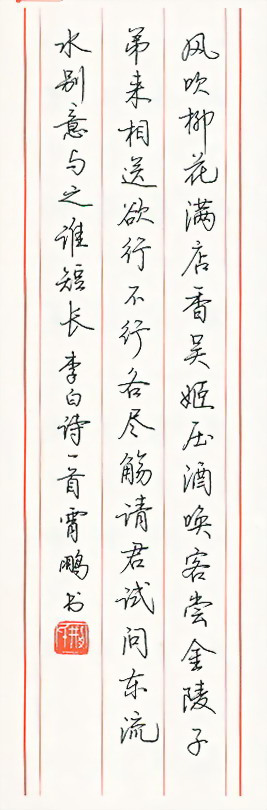 风吹柳花满店香吴姬压酒唤客尝金陵子
弟来相送欲行不行各尽觞请君试问东流
水别意与之谁短长李白诗一首霄鹏书